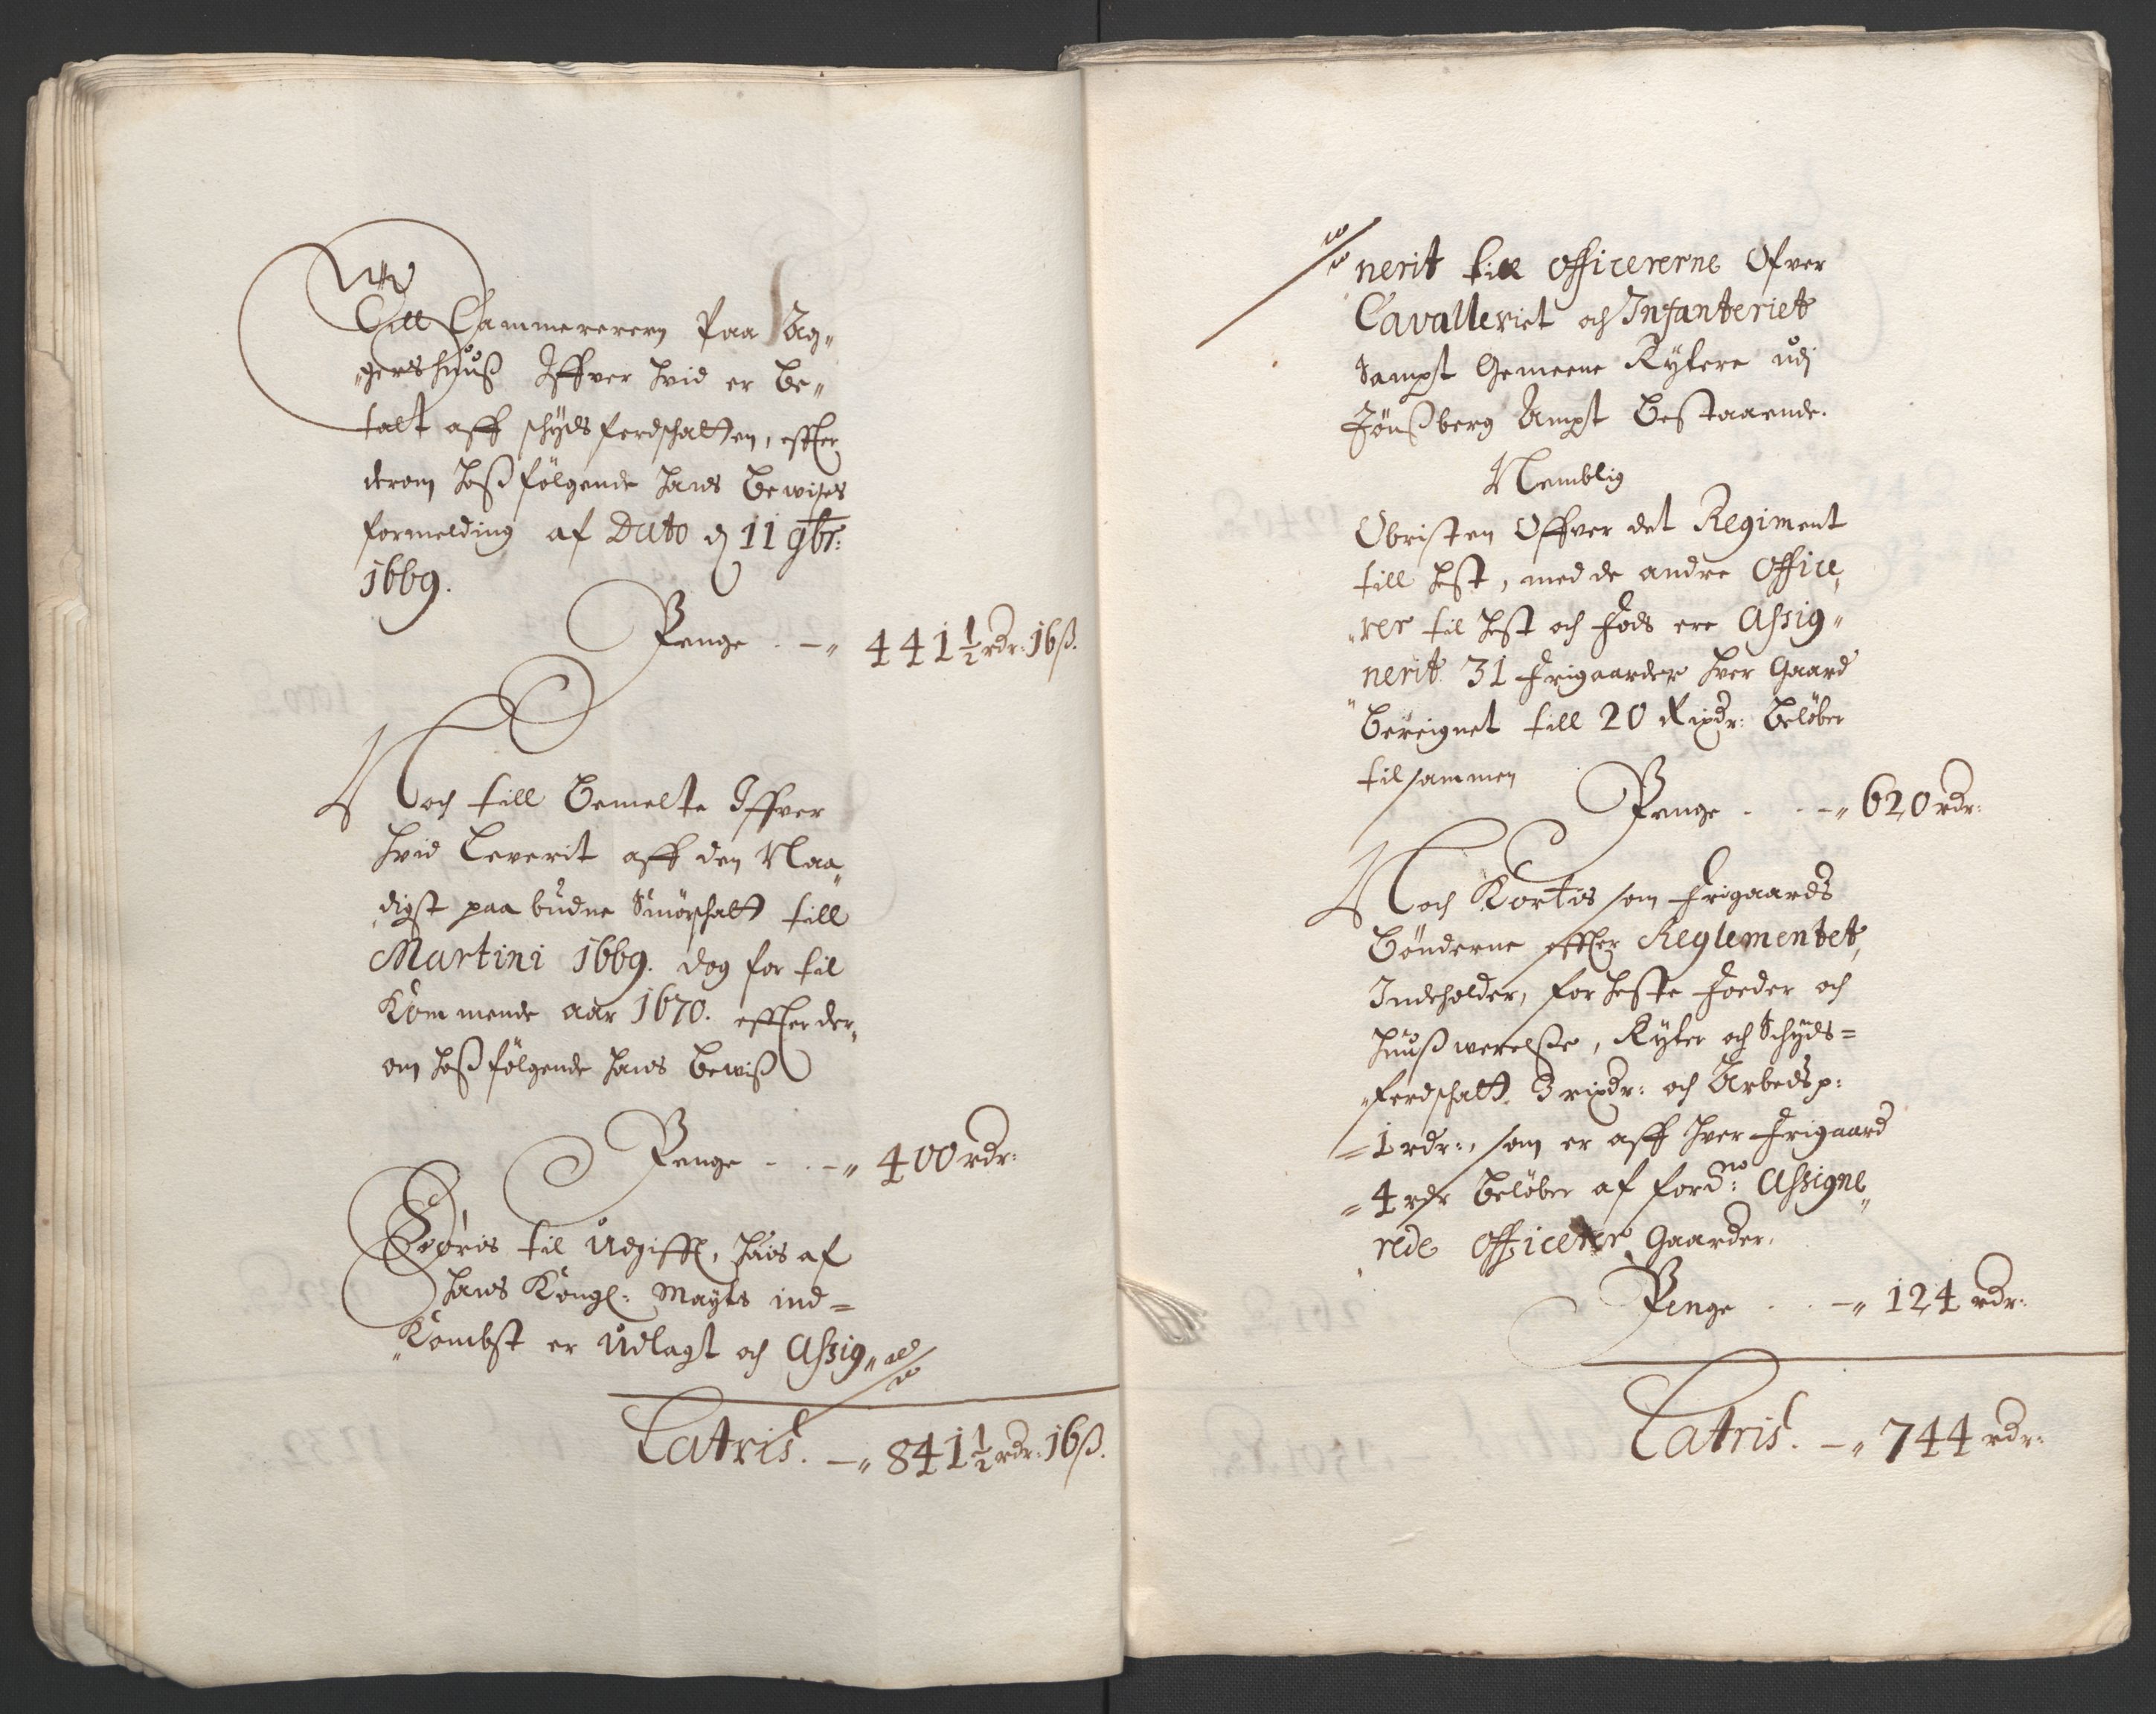 Till Cammereren Paa Ag„
„gershuuß Iffver Hvid er be„
talt aff schydsferdschatten, effter
derom hoßfölgende hans bewises
formelding af Dato d 11 9br:
1669.
Penge . –„ 441½ rdr: 16ß.
Noch till bemelte Iffver
Hvid leverit aff den Naa„
„digst paabudne Smörschatt till
Martini 1669. dog for til
Kommende aar 1670. effter der„
om hoßfölgende hans bewiß
Penge . . –„ 400 rdr:
Föris til Udgifft, hvis af
Hans Kongl: Mayts ind=
„Kombst er Udlagt och Assig„
Latris. –„ 841½ rdr: 16ß.
nerit till officererne Ofver
Cavalleriet och Infanteriet
Sampt Gemeene Rytere udj
Jönßberg Ampt bestaaende.
Nemblig
Obristen Offver det Regiment
till hest, med de andre Office„
„rer til Hest och Fods ere Assig„
„nerit 31 Frigaarder hver Gaard
bereignet till 20 Rixdr: belöber
tilsammen
Penge . . –„ 620 rdr:
Noch Kortis som Frigaards
bönderne effter Reglementet,
Indeholder, for heste Foeder och
huußwerelße, Ryter och Schyds=
„ferdschatt 3 rixdr: och Arbedsp:
= 1 rdr:, som er aff hver Frigaard
= 4 rdr belöber af fordne: Assigne„
rede officerer Gaarder.
Penge . . –„ 124 rdr:
Latris. –„ 744 rdr: